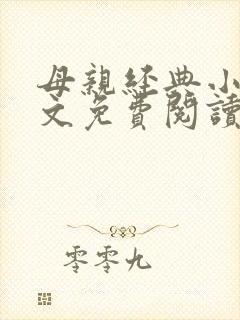 母親經典小
文免費閱讀
零零九